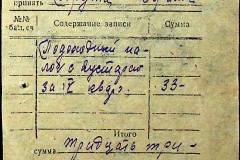 принять
№№ бал. сч. Содержание записи Сумма
Подоходный на-
лог с кустаря
за IV кварт. 33-
Итого
сумма тридцать три-